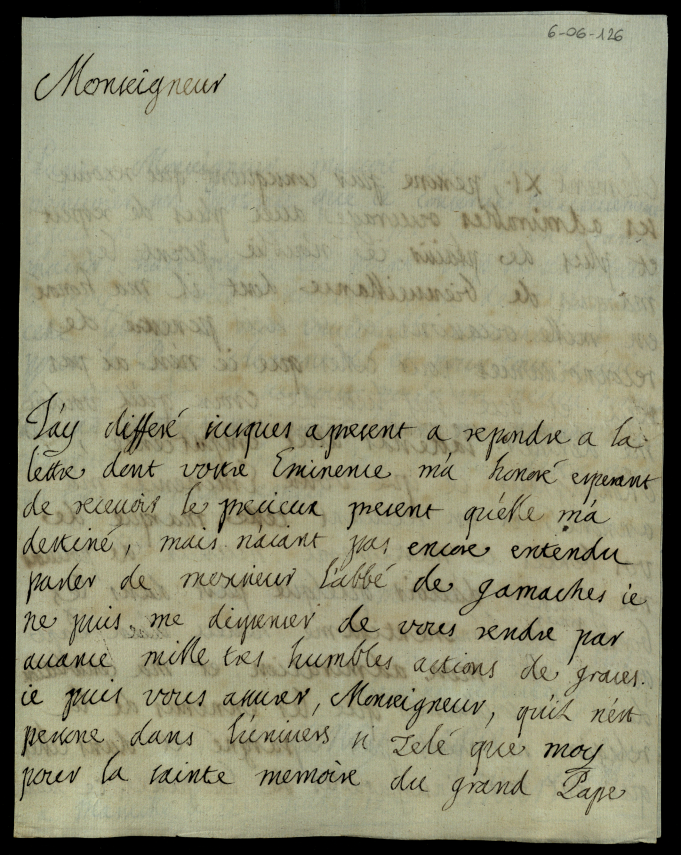 6-06-126
Monseigneur
J'ay differé jusques apresent a repondre a la
lettre dont vostre Eminence m'a honoré esperant
de recevoir le precieux present qu'elle m'a
destiné, mais n'aiant pas encore entendu
parler de messieur l'abbé de gamaches ie
ne puis me dispenser de vous rendre par
avance mille tres humbles actions de graces.
ie puis vous assurer, Monseigneur, qu'il n'est
persone dans l'univers si zelé que moy
pour la sainte memoire du grand Pape